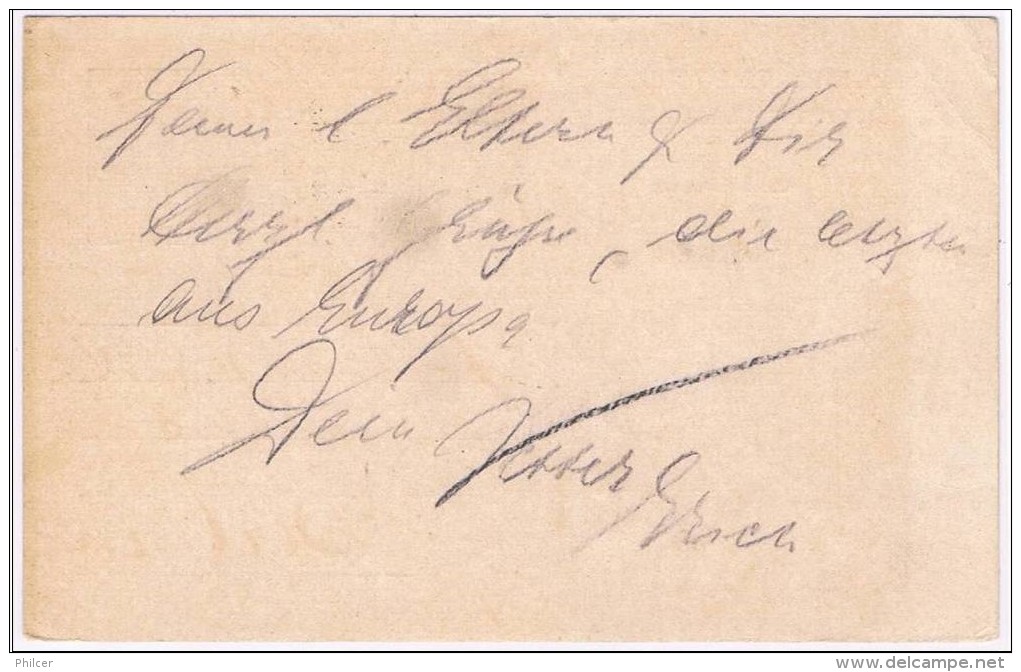 Deinen l. Eltern & Dir
herzl. Grüße, die letzten
aus Europa
Dein Vetter Erich
Philcer
www.delcampe.net